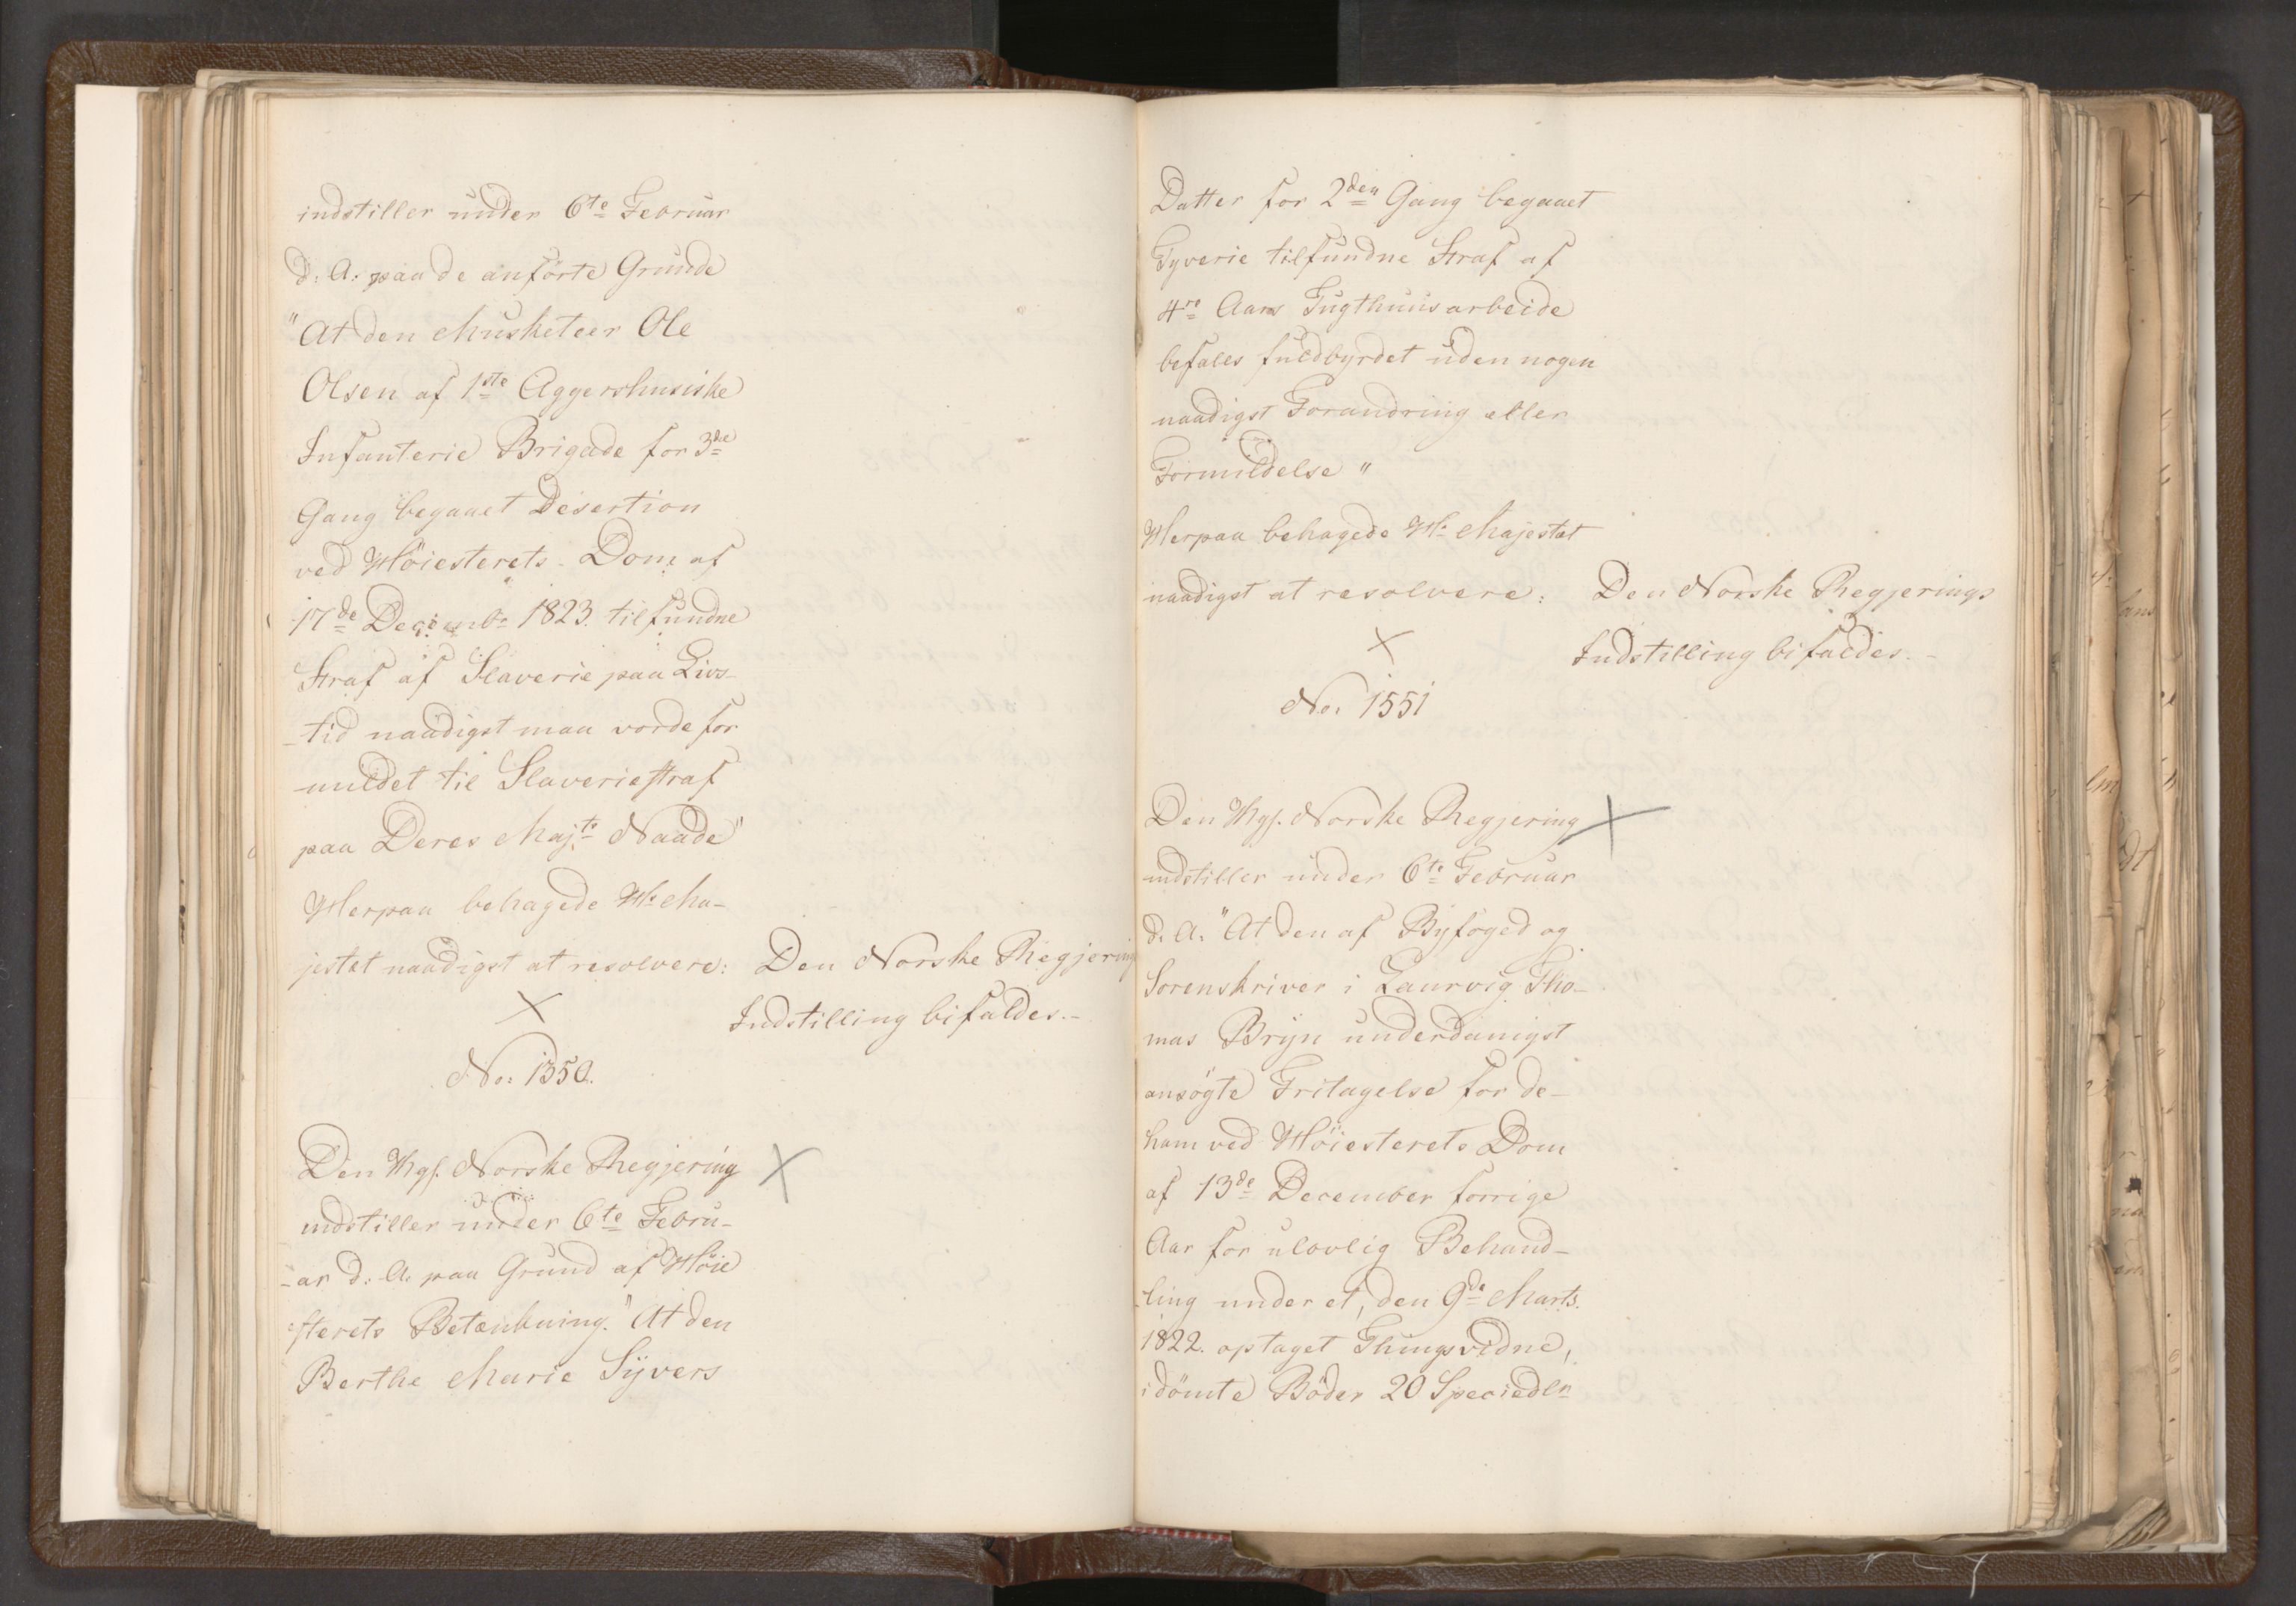 indstiller under 6te Februar
d: A: paa de anförte Grunde
"At den Musketeer Ole
Olsen af 1ste Aggershusiske
Infanterie Brigade for 3die
Gang begaaet Desertion
ved Höiesterets Dom af
17de Decembr 1823. tilfundne
Straf af Slaverie paa Livs-
-tid naadigst maa vorde for
mildet til Slaveriestraf
paa Deres Majts Naade"
Herpaa behagede Hs Ma-
jestæt naadigst at resolvere: Den Norske Regjering
Indstilling bifaldes.-
No: 1550.
Den Kgs. Norske Regjering
indstiller under 6te Febru-
-ar d: A: paa Grund af Höie
sterets Betænkning. "At den
Berthe Marie Syvers
Datter for 2den Gang begaaet
Tyverie tilfundne Straf af
4re Aars Tugthuusarbeide
befales fuldbyrdet uden nogen
naadigst Forandring eller
Formildelse"
Herpaa behagede Hs Majestæt
naadigst at resolvere: Den Norske Regjerings
Indstilling bifaldes.-
No: 1551
Den Kgs. Norske Regjering
indstiller under 6te Februar
d. A. "At den af Byfoged og
Sorenskriver i Laurvig Tho-
mas Bryn underdanigst
ansögte Fritagelse for de-
ham ved Höiesterets Dom
af 13de December forrige
Aar for ulovlig Behand-
-ling under et, den 9de Marts.
1822. optaget Thingsvidne,
idömte Böder 20 Speciedlr